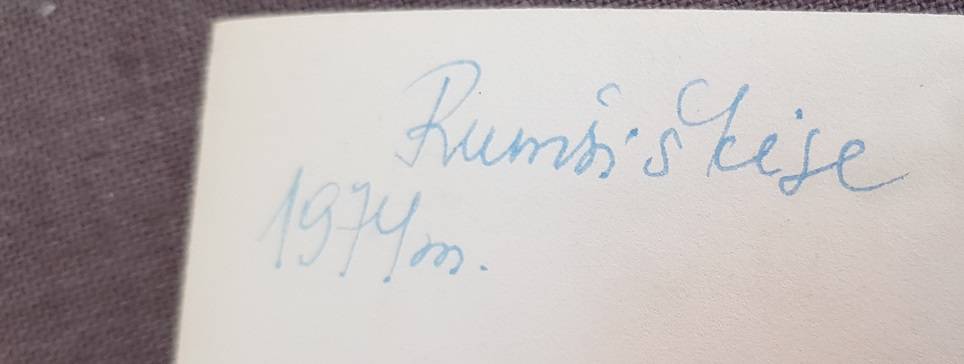 Rumšiškėse
1974 m.